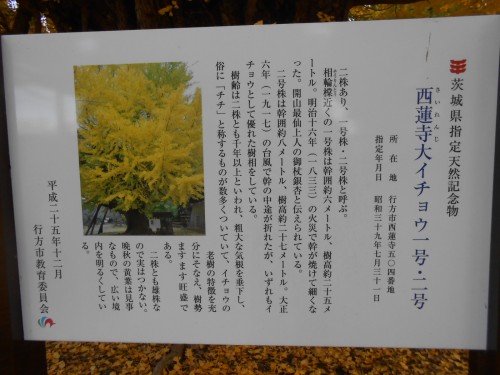 茨城県指定天然記念物
西蓮寺大イチョウ一号・二号
さいれんじ
所在地 行方市西蓮寺五〇四番地
指定年月日 昭和三十九年七月三十一日
二株あり、一号株・二号株と呼ぶ。
相輪橖近くの一号株は幹囲約六メートル、樹高約二十五メ
ートル。明治十六年(一八三三)の火災で幹が焼けて細くな
った。開山最仙上人の御杖銀杏と伝えられている。
二号株は幹囲約八メートル、樹高約二十七メートル。大正
六年(一九一七)の台風で幹の中途が折れたが、いずれもイ
チョウとして優れた樹相をしている。
樹齢は二株とも千年以上といわれ、粗大な気根を垂下し、
俗に「チチ」と称するものが数多くついていて、イチョウの
老樹の特徴を充
分にそなえ、樹勢
ますます旺盛で
ある。
二株とも雄株な
ので実はつかない。
晩秋の黄葉は見事
なもので、広い境
内を明るくしてい
る。
平成二十五年十二月
行方市教育委員会